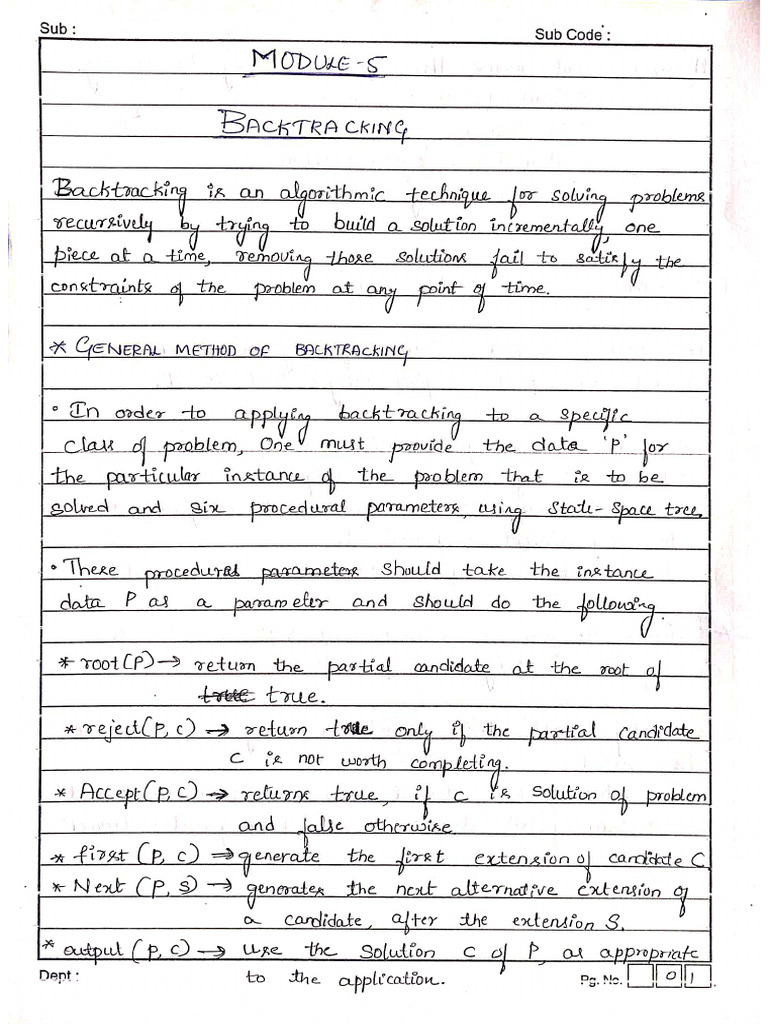 Sub :
Sub Code :
MODULE-5
BACKTRACKING
Backtracking is an algorithmic technique for solving problems
recursively by trying to build a solution incrementally, one
piece at a time, removing those solutions fail to satisfy the
constraints of the problem at any point of time.
* GENERAL METHOD OF BACKTRACKING
• In order to applying backtracking to a specific
class of problem, One must provide the data 'P' for
the particular instance of the problem that is to be
solved and six procedural parameters, using State-Space tree.
• These procedural parameters should take the instance
data P as a parameter and should do the following.
* root(P) → return the partial candidate at the root of
true true.
* reject(P, c) → return true only if the partial candidate
c is not worth completing.
* Accept(P, C) → returns true, if c is solution of problem
and false otherwise
* first (P, c) → generate the first extension of candidate C
* Next (P, S) → generates the next alternative extension of
a candidate, after the extension S.
* output (P, C) → use the solution C of P, as appropriate
to the application.
Dept :
Pg. No. 01